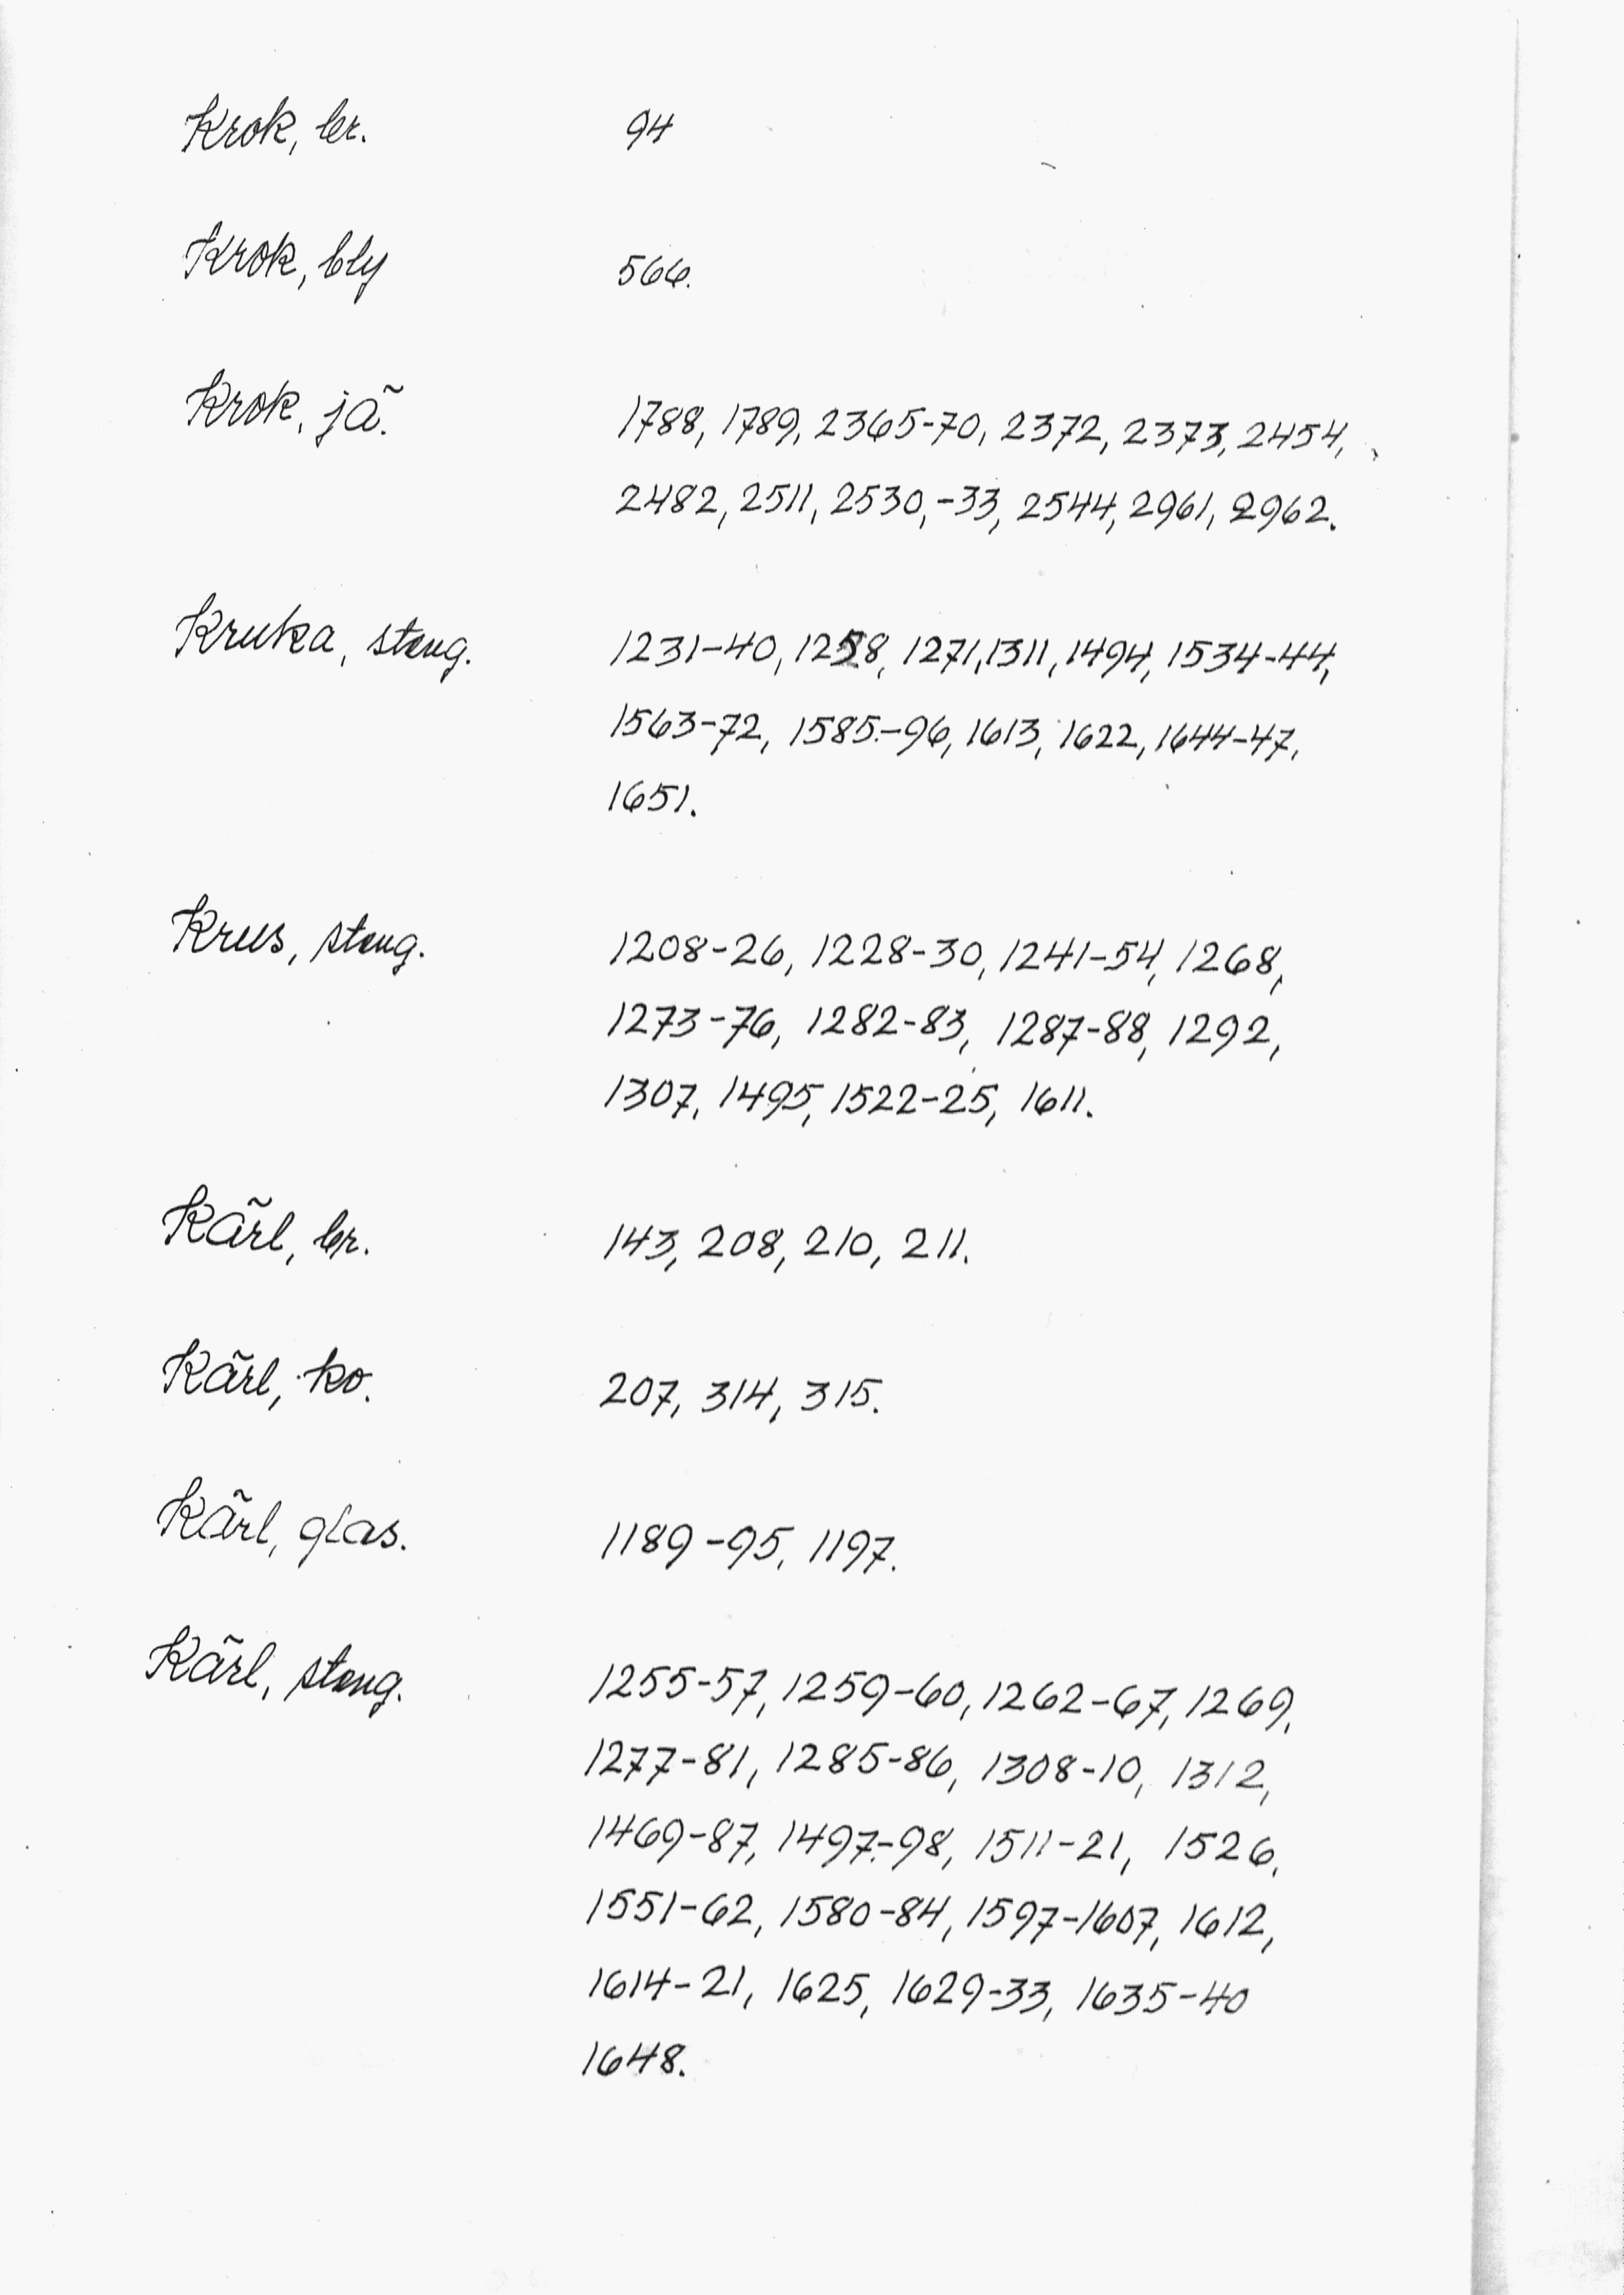 Krok, br. 94
Krok, bly 566.
Krok, jä. 1788, 1789, 2365-70, 2372, 2373, 2454,
2482, 2511, 2530,-33, 2544, 2961, 2962.
Kruka, steng. 1231-40, 1258, 1271, 1311, 1494, 1534-44,
1563-72, 1585-96, 1613, 1622, 1644-47,
1651.
Krus, steng. 1208-26, 1228-30, 1241-54, 1268,
1273-76, 1282-83, 1287-88, 1292,
1307, 1495, 1522-25, 1611.
Kärl, br. 143, 208, 210, 211.
Kärl, ko. 207, 314, 315.
Kärl, glas. 1189-95, 1197.
Kärl, steng. 1255-57, 1259-60, 1262-67, 1269,
1277-81, 1285-86, 1308-10, 1312,
1469-87, 1497-98, 1511-21, 1526,
1551-62, 1580-84, 1597-1607, 1612,
1614-21, 1625, 1629-33, 1635-40
1648.